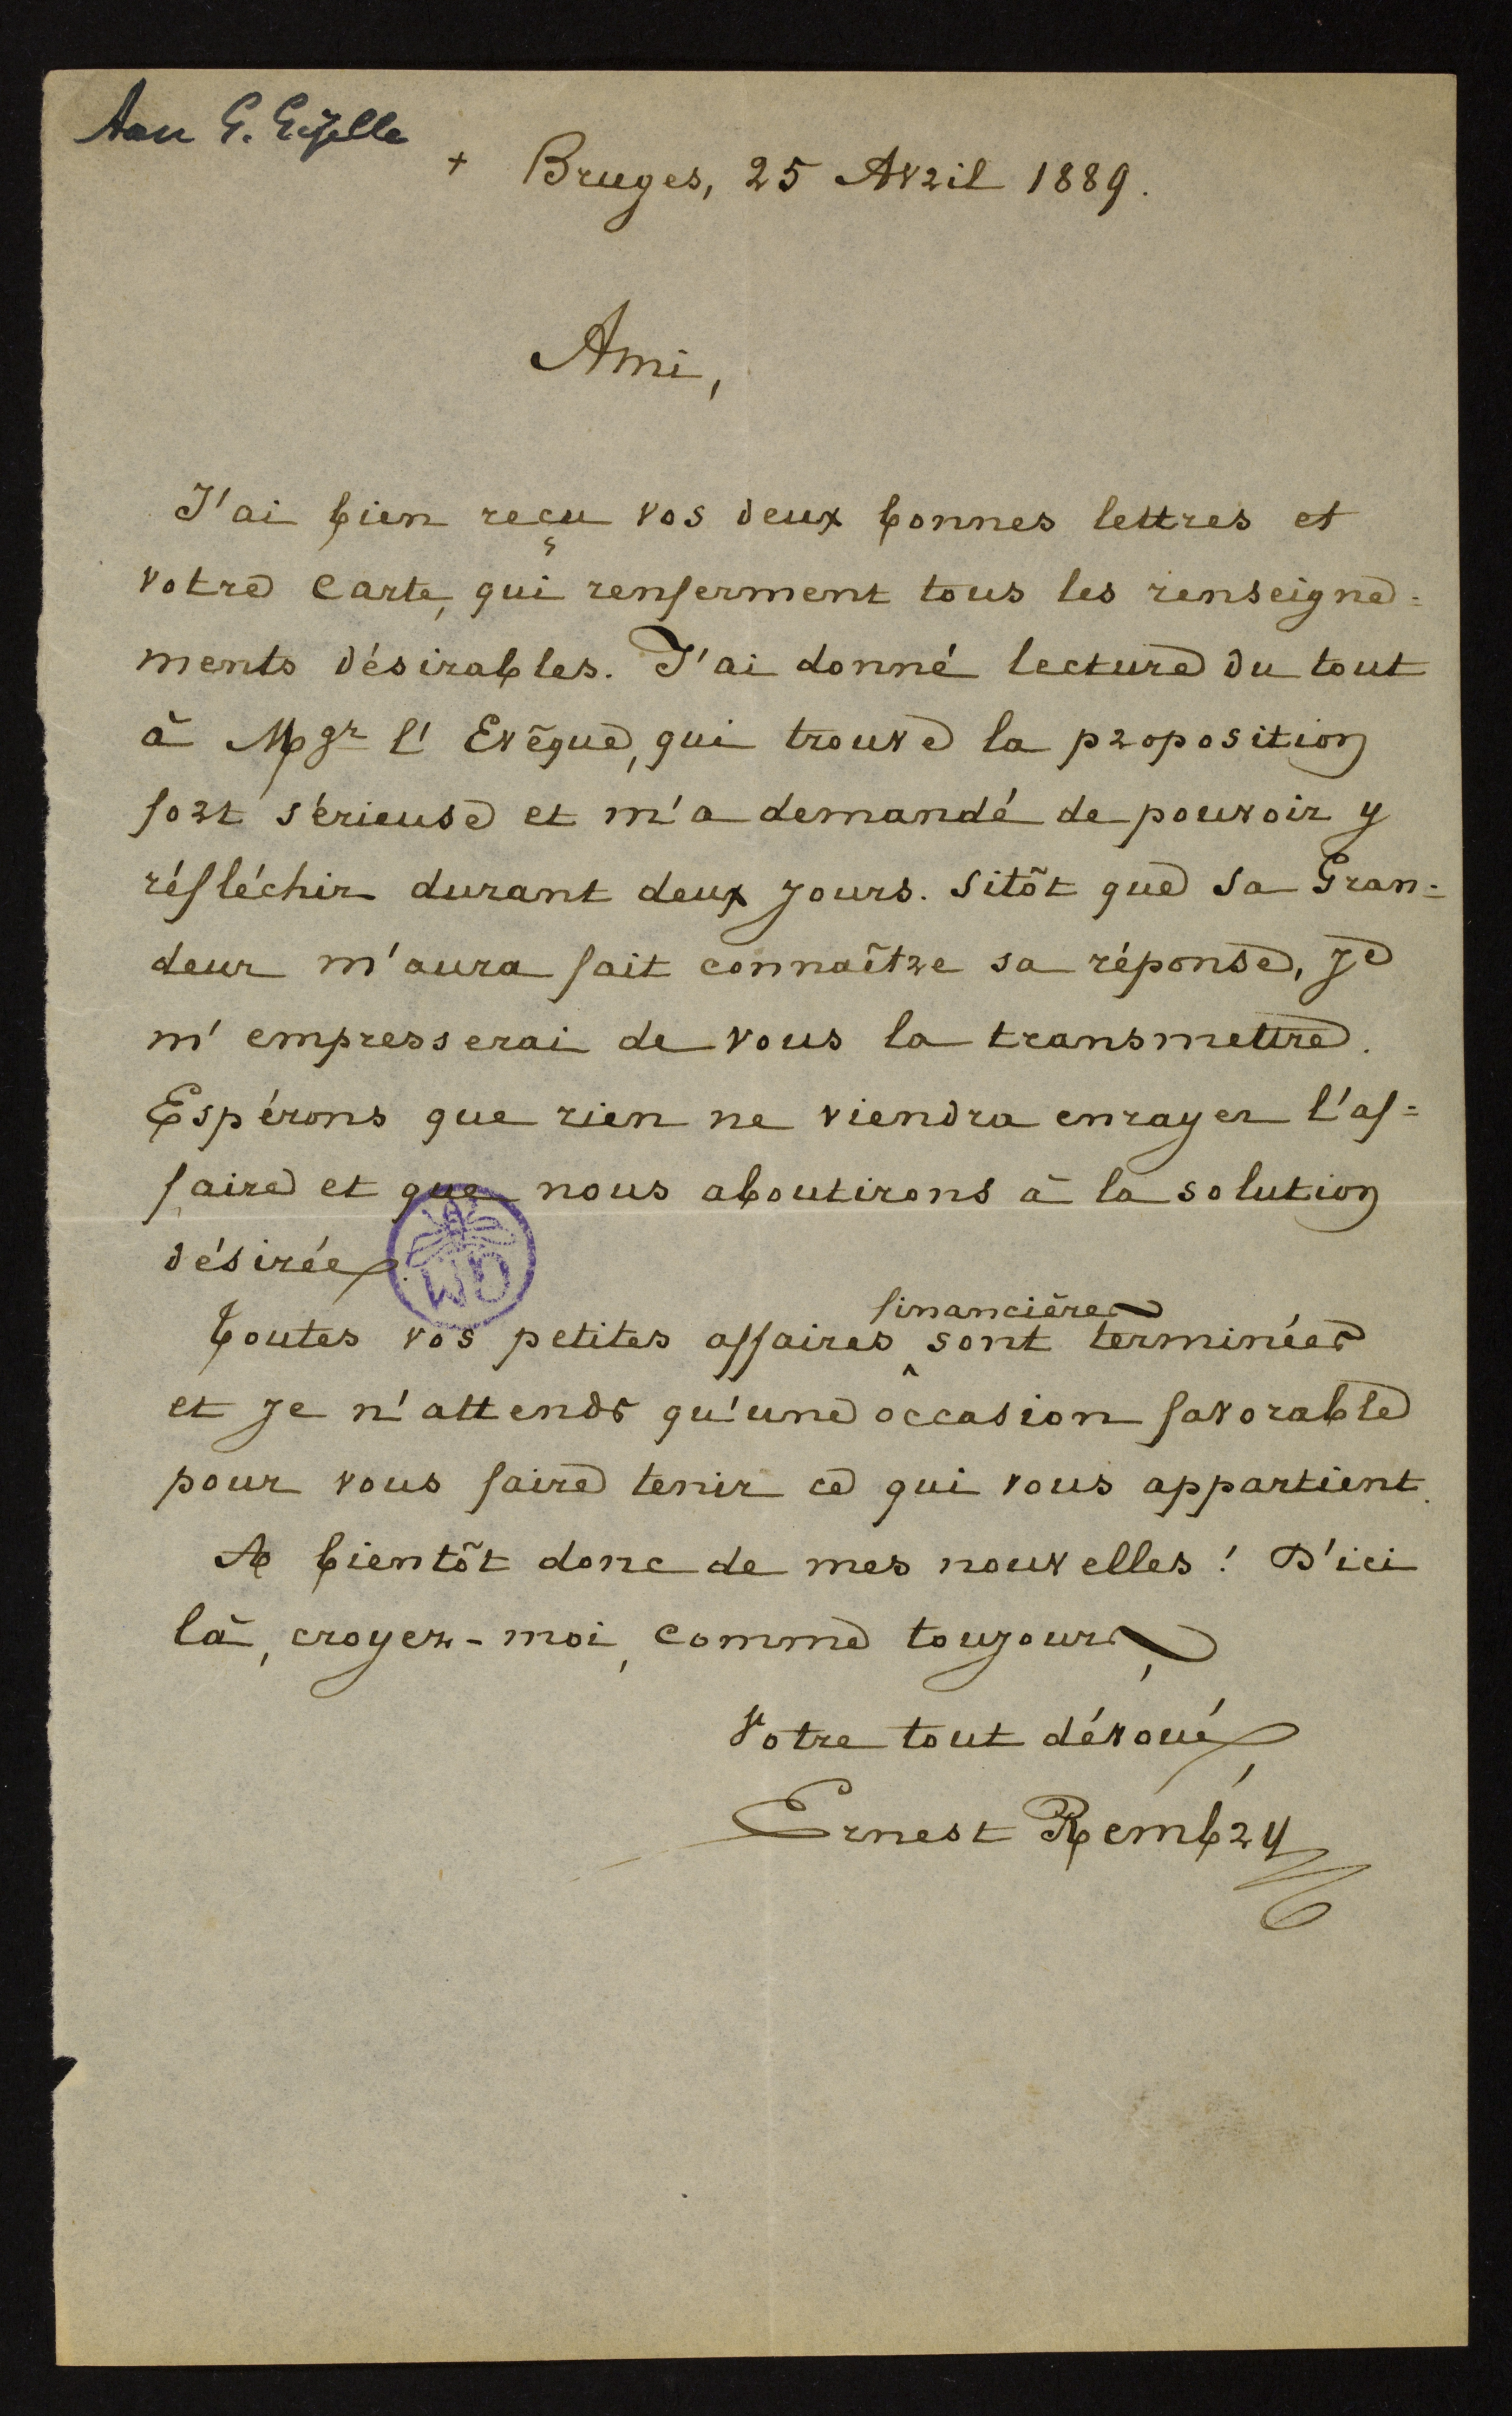 Aan G. Gezelle
+ Bruges, 25 Avril 1889.
Ami,
J'ai bien reçu vos deux bonnes lettres et
votre carte, qui renferment tous les renseigne=
ments désirables. J'ai donné lecture du tout
à Mgr l'Evêque, qui trouve la proposition
fort sérieuse et m'a demandé de pouvoir y
réfléchir durant deux jours. Sitôt que Sa Gran=
deur m'aura fait connaître sa réponse, je
m'empresserai de vous la transmettre.
Espérons que rien ne viendra enrayer l'af=
faire et que nous aboutirons à la solution
désirée.
WD
financières
Toutes vos petites affaires ^ sont terminées
et je n'attends qu'une occasion favorable
pour vous faire tenir ce qui vous appartient.
A bientôt donc de mes nouvelles! D'ici
là, croyez-moi, comme toujours,
Votre tout dévoué,
Ernest Rembry